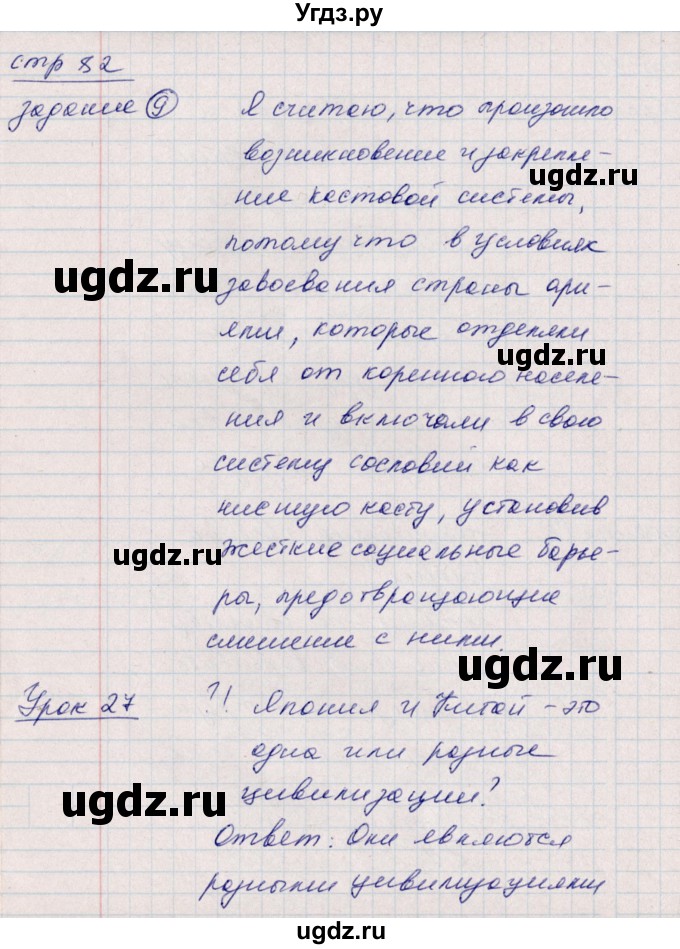 Угдз.ру
стр 82
задание 9 Я считаю, что произошло
возникновение и закрепле-
ние кастовой системы,
потому что в условиях
завоевания страны ари-
ями, которые отделяли
себя от коренного населе-
ния и включали в свою
систему сословий как
низшую касту, установив
жесткие социальные барье-
ры, предотвращающие
смешение с ними.
Урок 27 ?! Япония и Китай - это
одна или разные
цивилизации?
Ответ: Они являются
разными цивилизациями
ugdz.ru
ugdz.ru
ugdz.ru
ugdz.ru
ugdz.ru
ugdz.ru
ugdz.ru